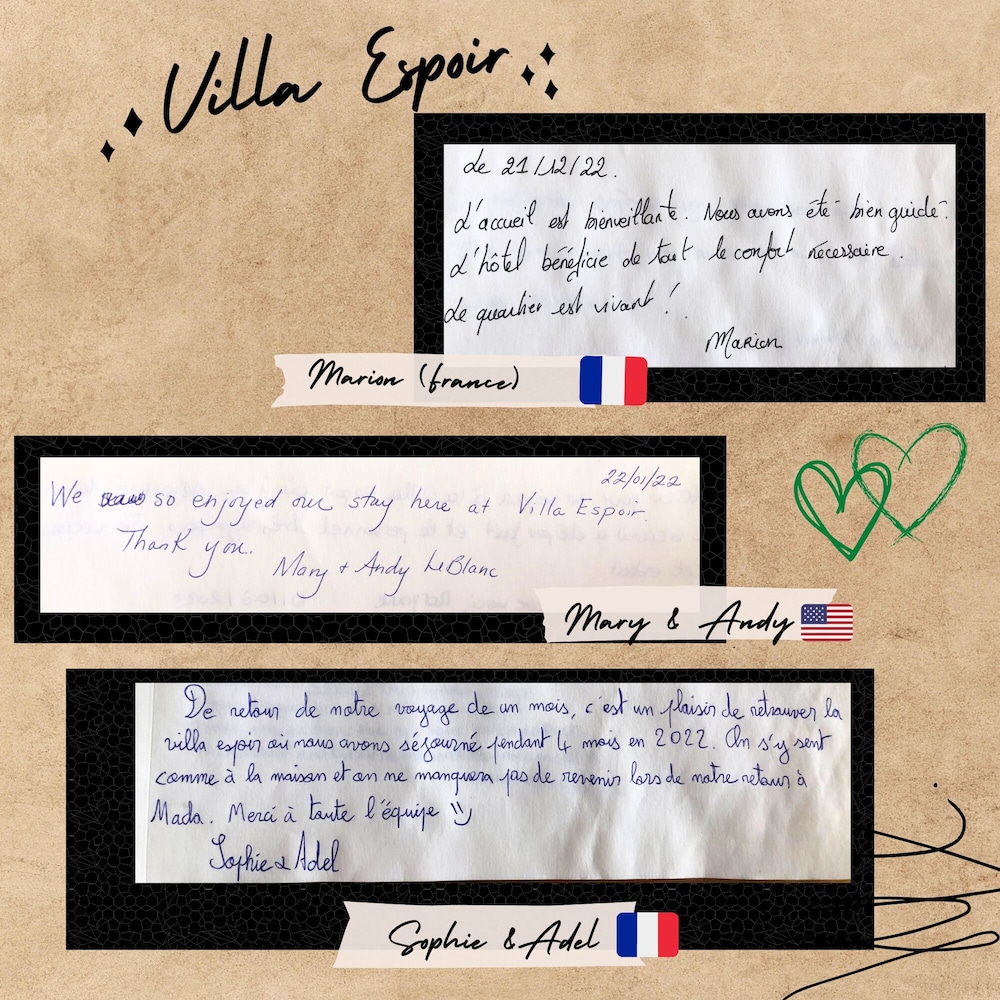 Villa Espoir
Le 21/12/22.
L'accueil est bienveillante. Nous avons été bien guidé.
L'hôtel bénéficie de tout le confort nécessaire.
Le quartier est vivant !
Marion
Marion (france)
22/01/22
We so enjoyed our stay here at Villa Espoir.
Thank you.
Mary + Andy LeBlanc
Mary & Andy
De retour de notre voyage de un mois, c'est un plaisir de retrouver la
villa espoir où nous avons séjourné pendant 4 mois en 2022. On s'y sent
comme à la maison et on ne manquera pas de revenir lors de notre retour à
Mada. Merci à toute l'équipe
Sophie & Adel
Sophie & Adel